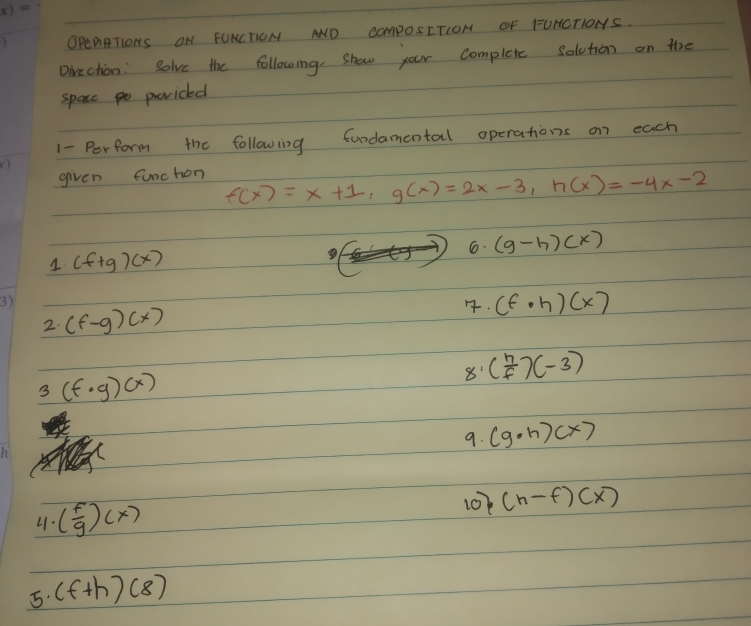 x) =
OPERATIONS ON FUNCTION AND COMPOSITION OF FUNCTIONS.
Direction: Solve the following. Show your complete solution on the
space provided
1- Perform the following fundamental operations on each
given function
f(x) = x +1, g(x) = 2x -3, h(x) = -4x -2
1. (f+g)(x)
2. (f-g)(x)
3 (f•g)(x)
4. (f/g)(x)
5. (f+h)(8)
6. (g-h)(x)
7. (f•h)(x)
8. (h/f)(-3)
9. (g•h)(x)
10. (h-f)(x)
3)
h